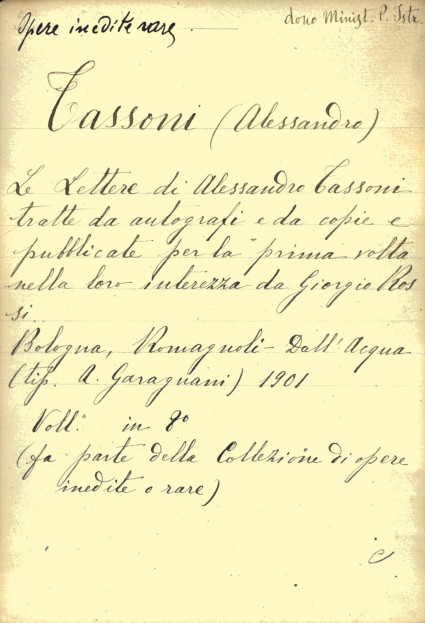 Opere inedite rare
dono Minist. P. Istr.
Tassoni (Alessandro)
Le Lettere di Alessandro Tassoni
tratte da autografi e da copie e
pubblicate per la prima volta
nella loro interezza da Giorgio Ros
si.
Bologna, Romagnoli-Dall'Acqua
(tip. A. Garagnani) 1901
Voll. in 8°
(fa parte della Collezione di opere
inedite o rare)